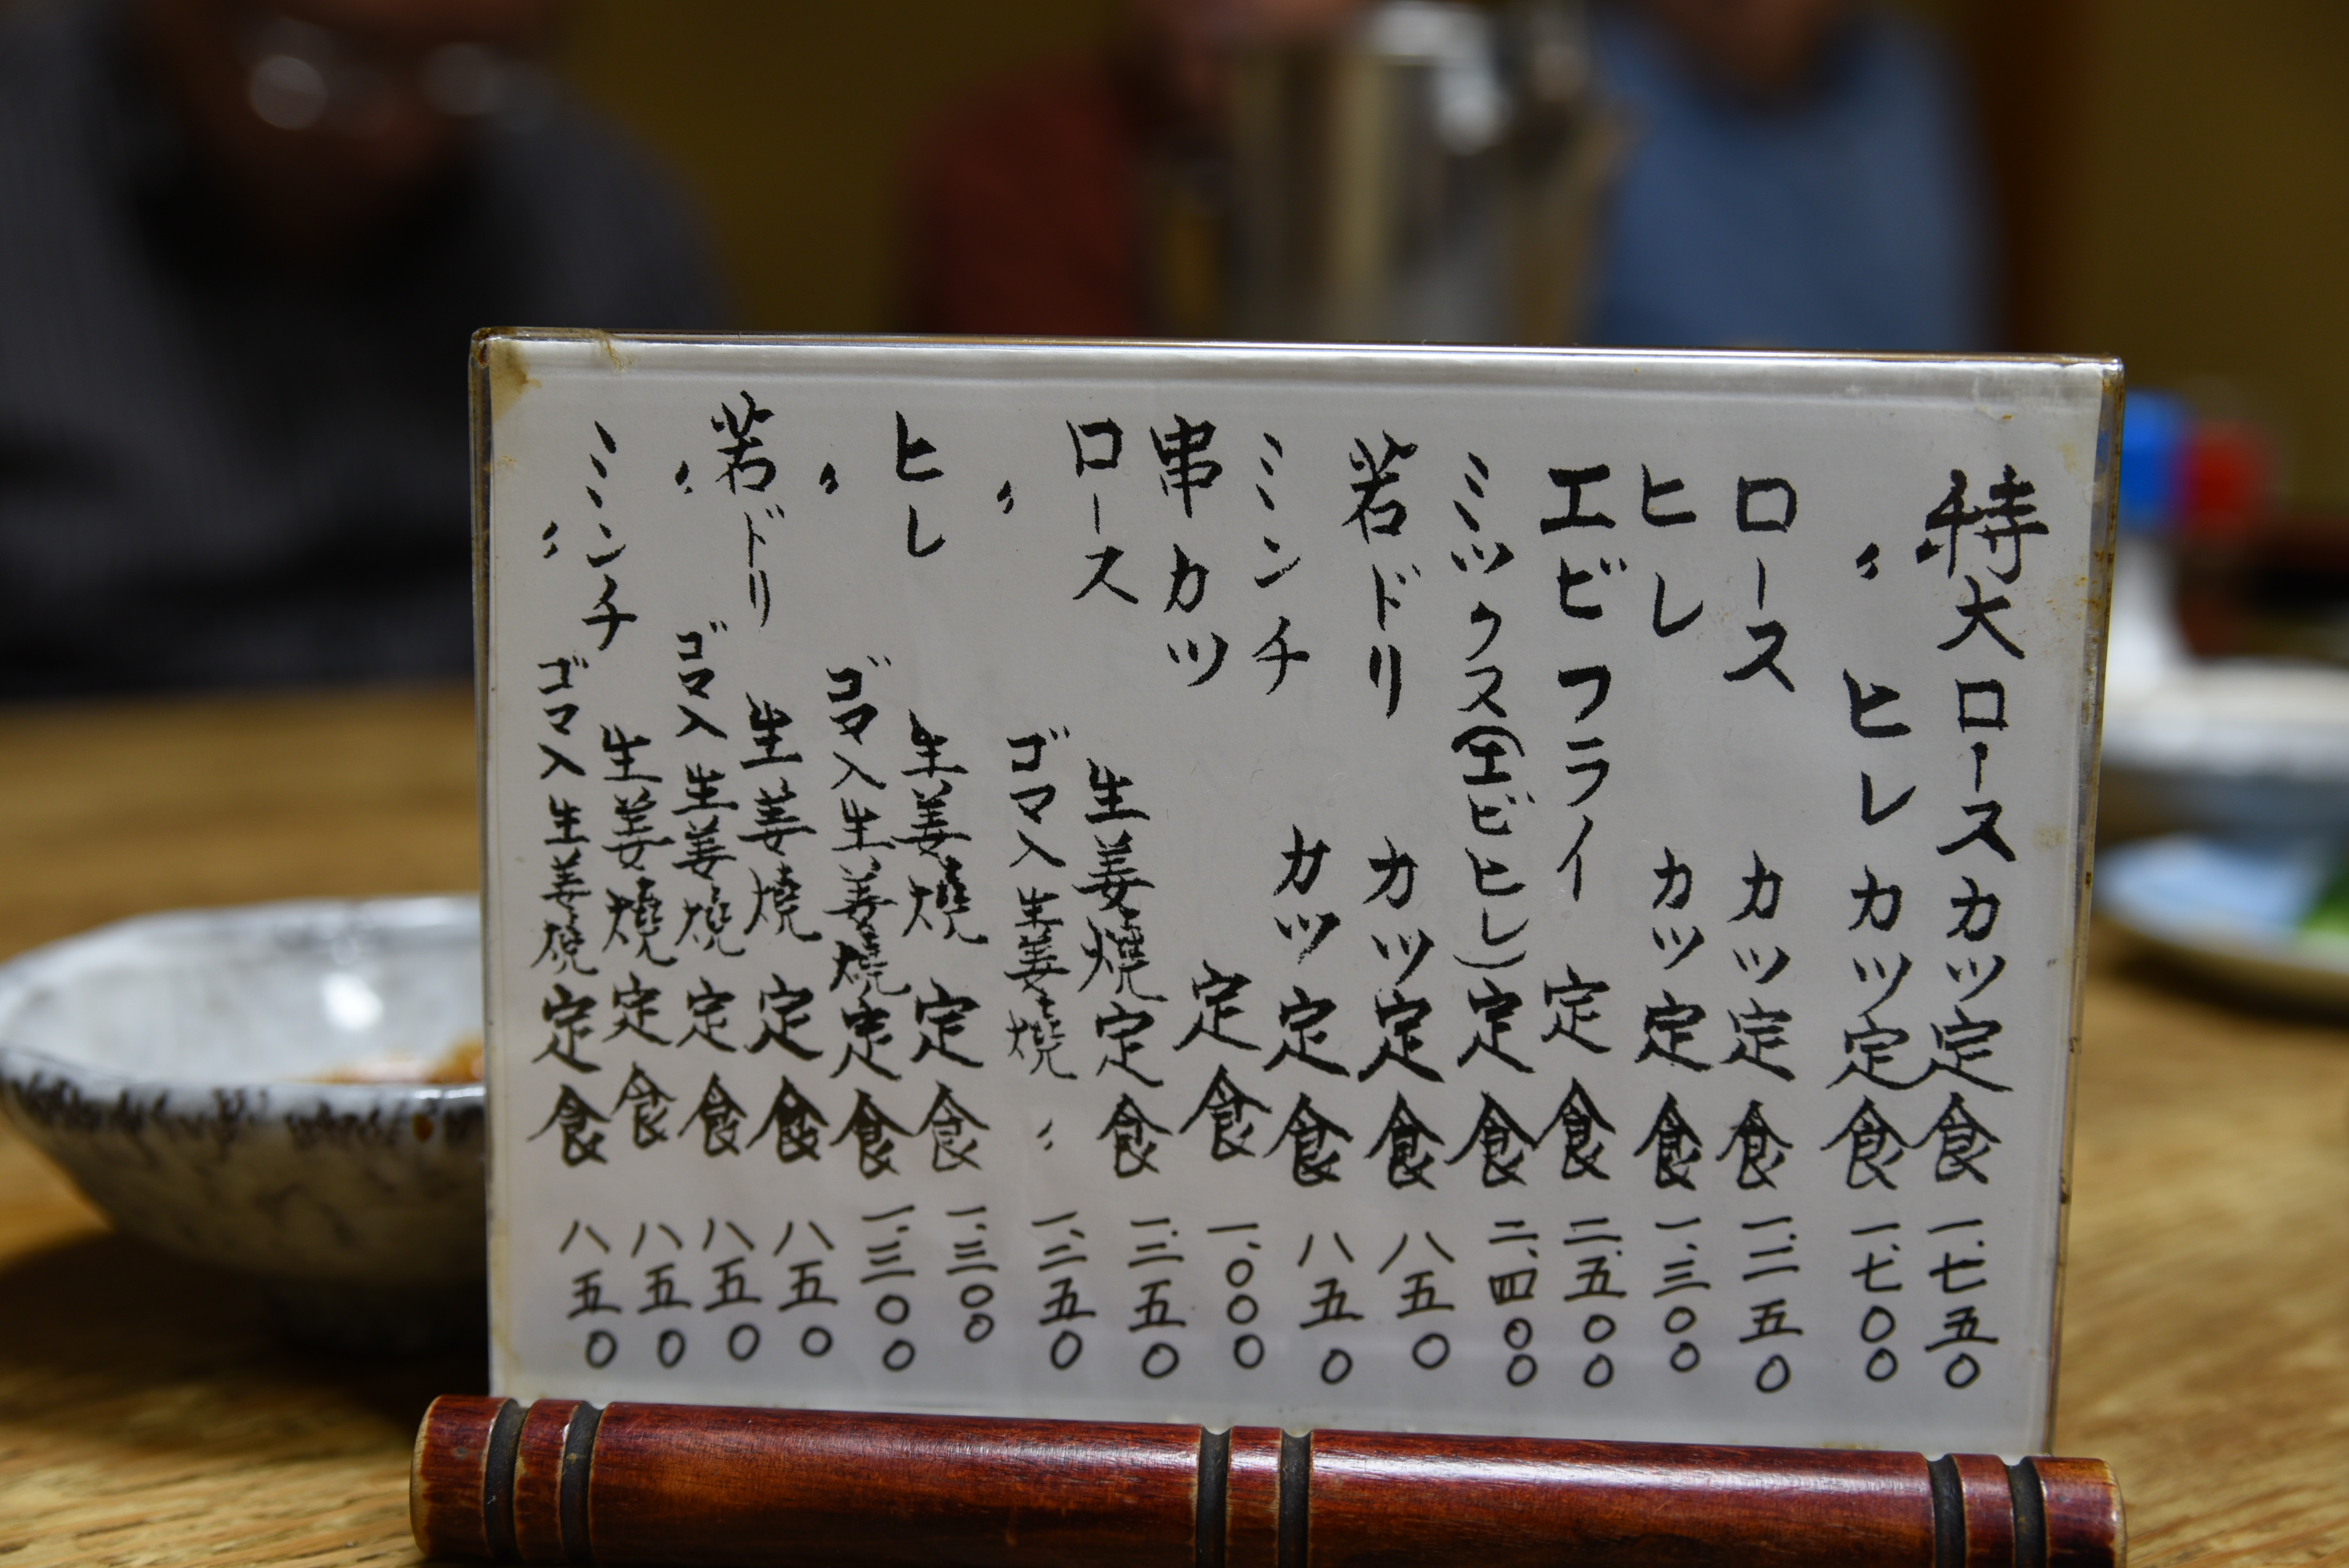 特大ロースカツ定食 一、七五〇
〃 ヒレカツ定食 一、七〇〇
ロース カツ定食 一、二五〇
ヒレ カツ定食 一、三〇〇
エビフライ定食 二、五〇〇
ミックス(エビヒレ)定食 二、四〇〇
若ドリ カツ定食 八五〇
ミンチ カツ定食 八五〇
串カツ 定食 一、〇〇〇
ロース 生姜燒定食 一、二五〇
〃 ゴマ入生姜燒 〃 一、二五〇
ヒレ 生姜燒定食 一、三〇〇
〃 ゴマ入生姜燒定食 一、三〇〇
若ドリ 生姜燒定食 八五〇
〃 ゴマ入生姜燒定食 八五〇
ミンチ 生姜燒定食 八五〇
〃 ゴマ入生姜燒定食 八五〇